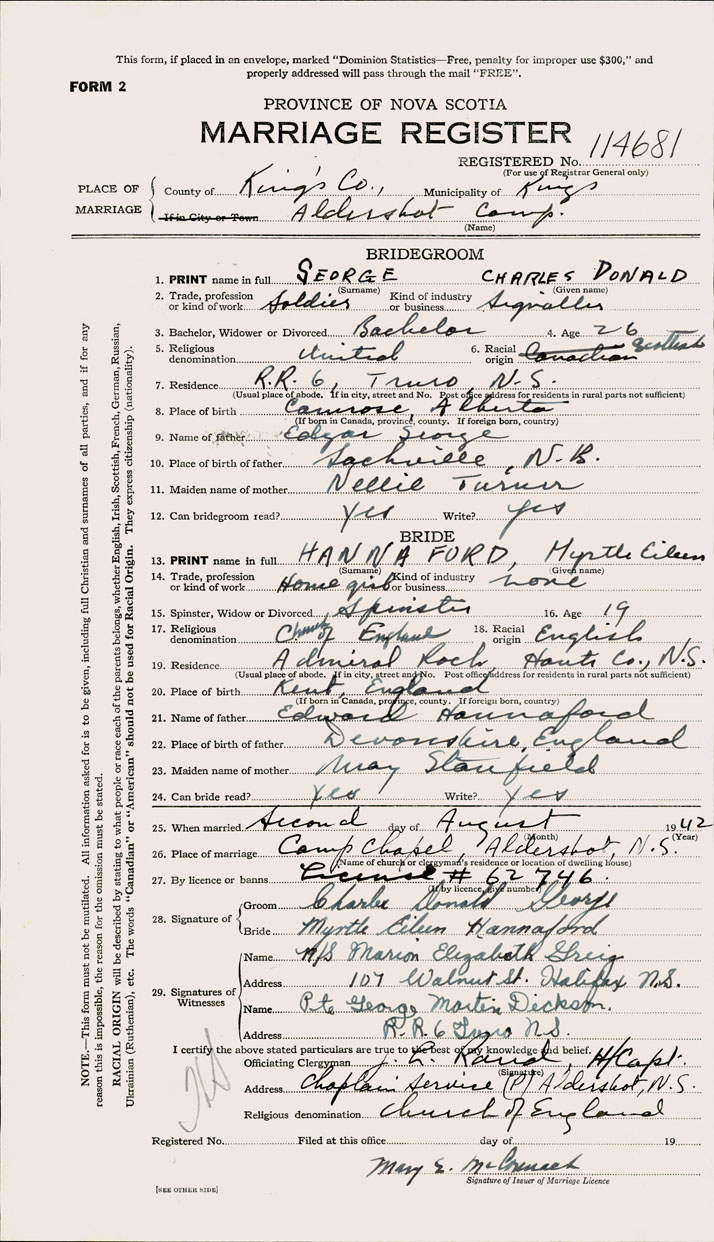 This form, if placed in an envelope, marked "Dominion Statistics—Free, penalty for improper use $300," and
properly addressed will pass through the mail "FREE".
FORM 2
PROVINCE OF NOVA SCOTIA
MARRIAGE REGISTER
REGISTERED No. 114681
(For use of Registrar General only)
PLACE OF MARRIAGE
County of King's Co., Municipality of Kings
If in City or Town Aldershot Camp.
(Name)
BRIDEGROOM
1. PRINT name in full GEORGE CHARLES DONALD
(Surname) (Given name)
2. Trade, profession or kind of work Soldier Kind of industry or business Signaller
3. Bachelor, Widower or Divorced Bachelor 4. Age 26
5. Religious denomination United 6. Racial origin Canadian Scottish
7. Residence R.R. 6, Truro, N.S.
(Usual place of abode. If in city, street and No. Post office address for residents in rural parts not sufficient)
8. Place of birth Camrose, Alberta
(If born in Canada, province, county. If foreign born, country)
9. Name of father Edgar George
10. Place of birth of father Sackville, N.B.
11. Maiden name of mother Nellie Turner
12. Can bridegroom read? Yes Write? Yes
BRIDE
13. PRINT name in full HANNAFORD, Myrtle Eileen
(Surname) (Given name)
14. Trade, profession or kind of work Home girl Kind of industry or business none
15. Spinster, Widow or Divorced Spinster 16. Age 19
17. Religious denomination Church of England 18. Racial origin English
19. Residence Admiral Rock, Hants Co., N.S.
(Usual place of abode. If in city, street and No. Post office address for residents in rural parts not sufficient)
20. Place of birth Kent, England
(If born in Canada, province, county. If foreign born, country)
21. Name of father Edward Hannaford
22. Place of birth of father Devonshire, England
23. Maiden name of mother May Stanfield
24. Can bride read? Yes Write? Yes
25. When married Second day of August 1942
(Month) (Year)
26. Place of marriage Camp Chapel, Aldershot, N.S.
(Name of church or clergyman's residence or location of dwelling house)
27. By licence or banns License # 62746.
(If by licence, give number)
28. Signature of
Groom Charles Donald George
Bride Myrtle Eileen Hannaford
29. Signatures of Witnesses
Name N/S Marion Elizabeth Greig
Address 107 Walnut St. Halifax N.S.
Name Pte George Martin Dickson.
Address R.R. 6 Truro N.S.
I certify the above stated particulars are true to the best of my knowledge and belief.
Officiating Clergyman H/Capt.
(Signature)
Address Chaplain Service (P) Aldershot, N.S.
Religious denomination Church of England
Registered No. Filed at this office day of 19
Mary E. McCormack
Signature of Issuer of Marriage Licence
[SEE OTHER SIDE]
NOTE.—This form must not be mutilated. All information asked for is to be given, including full Christian and surnames of all parties, and if for any
reason this is impossible, the reason for the omission must be stated.
RACIAL ORIGIN will be described by stating to what people or race each of the parents belongs, whether English, Irish, Scottish, French, German, Russian,
Ukrainian (Ruthenian), etc. The words "Canadian" or "American" should not be used for Racial Origin. They express citizenship (nationality).